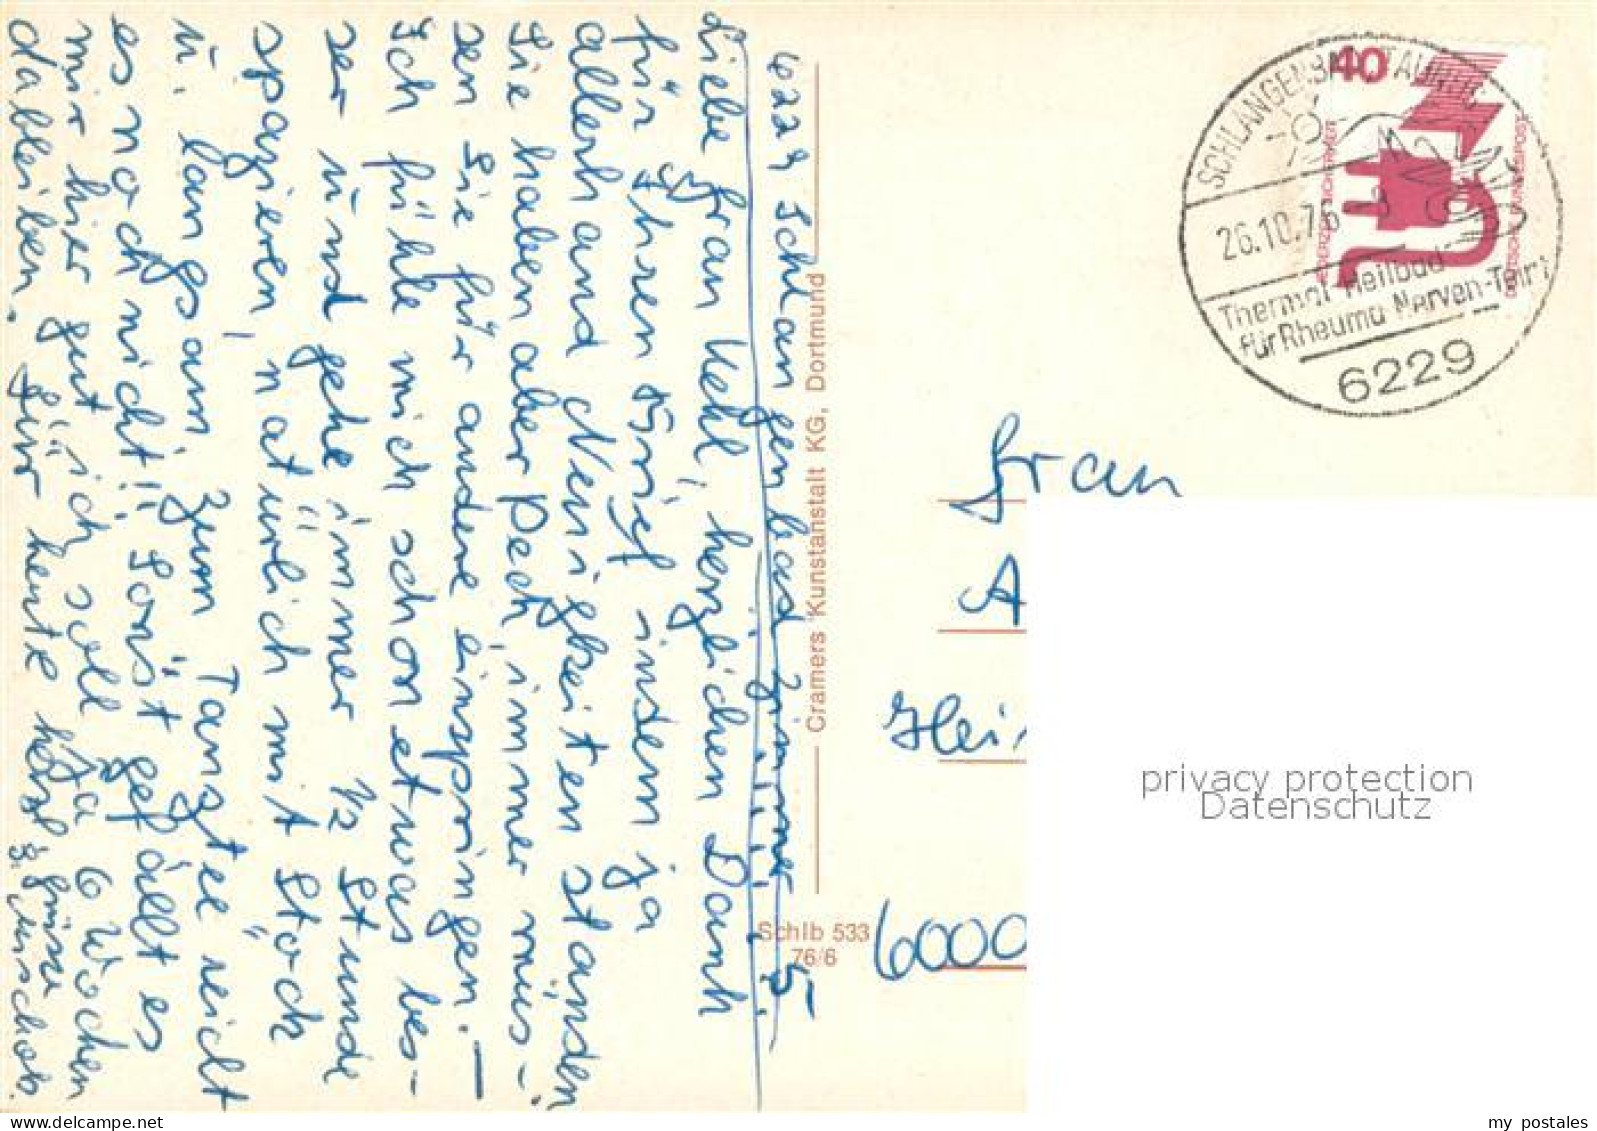 6229 Schlangenbad Zimmer 5
Liebe Frau Kehl, herzlichen Dank
für Ihren Brief indem ja
allerhand Neuigkeiten ständen
Sie haben aber Pech, immer müs-
sen Sie für andere einspringen. —
Ich fühle mich schon etwas bes-
ser und gehe immer 1/2 Stunde
spazieren, natürlich mit Stock
u. langsam. Zum Tanztee reicht
es noch nicht!! Sonst gefällt es
mir hier gut, ich soll ja 6 Wochen
dableiben. Für heute herzl. Grüsse
Cramers Kunstanstalt KG, Dortmund
Schlb 533
76/6
40
DEUTSCHE BUNDESPOST
JEDERZEIT SICHERHEIT
SCHLANGENBAD TAUNUS
26.10.76
Thermal-Heilbad
für Rheuma-Nerven
6229
Frau
A
Hei
6000
privacy protection
Datenschutz
my postales